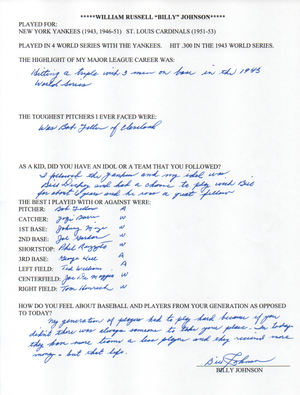 *****WILLIAM RUSSELL "BILLY" JOHNSON*****
PLAYED FOR:
NEW YORK YANKEES (1943, 1946-51) ST. LOUIS CARDINALS (1951-53)
PLAYED IN 4 WORLD SERIES WITH THE YANKEES. HIT .300 IN THE 1943 WORLD SERIES.
THE HIGHLIGHT OF MY MAJOR LEAGUE CAREER WAS:
Hitting a triple with 3 men on base in the 1943
World Series
THE TOUGHEST PITCHERS I EVER FACED WERE:
Was Bob Feller of Cleveland
AS A KID, DID YOU HAVE AN IDOL OR A TEAM THAT YOU FOLLOWED?
I followed the Yankees and my idol was
Bill Dickey and had a chance to play with Bill
for about 4 years and he was a great fellow
THE BEST I PLAYED WITH OR AGAINST WERE:
PITCHER: Bob Feller A
CATCHER: Yogi Berra W
1ST BASE: Johnny Mize W
2ND BASE: Joe Gordon W
SHORTSTOP: Phil Rizzuto W
3RD BASE: George Kell A
LEFT FIELD: Ted Williams A
CENTERFIELD: Joe Di Maggio W
RIGHT FIELD: Tom Henrich W
HOW DO YOU FEEL ABOUT BASEBALL AND PLAYERS FROM YOUR GENERATION AS OPPOSED
TO TODAY?
My generation of players had to play hard because if you
didn't there was always someone to take your place. In today
they have more teams & less players and they receive more
money - but that's life.
Billy Johnson
BILLY JOHNSON